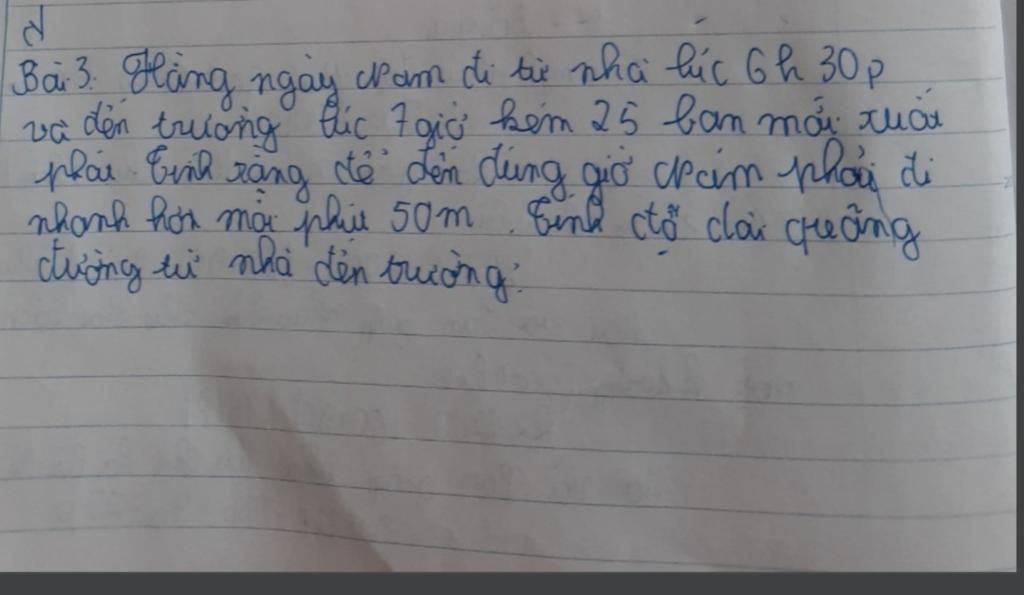 Bài 3. Hàng ngày Nam đi từ nhà lúc 6h 30p
và đến trường lúc 7 giờ kém 25 bam mới xuất
phải tính rằng để đến đúng giờ Nam phải đi
nhanh hơn mỗi phút 50m. Tính độ dài quãng
đường từ nhà đến trường.